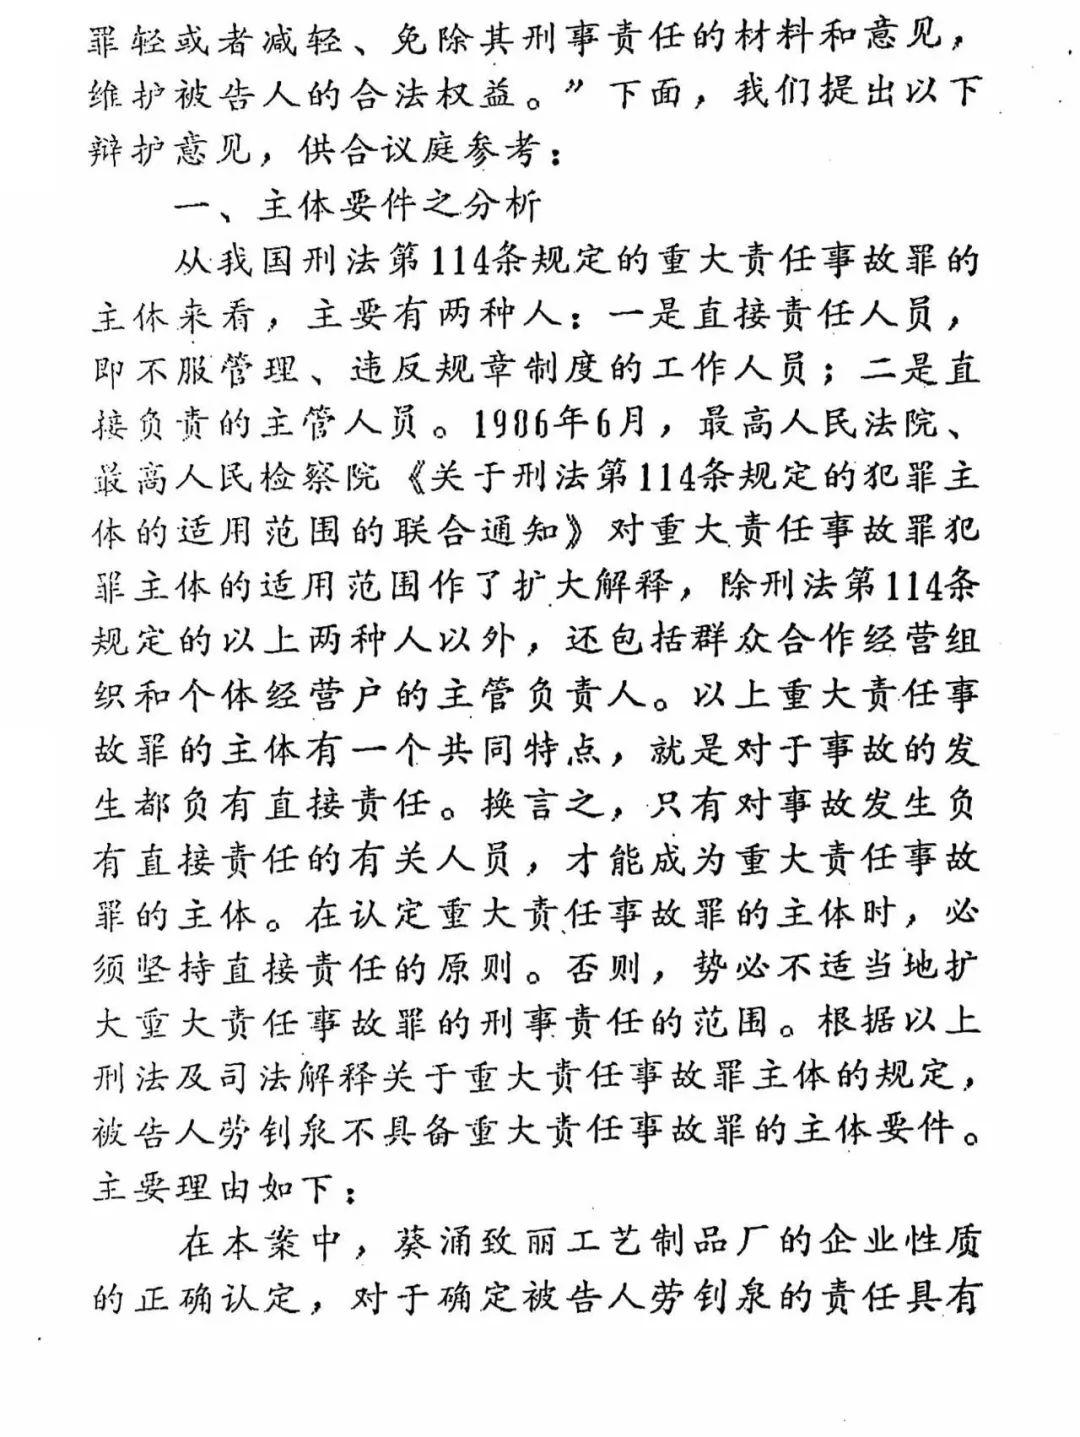 罪轻或者减轻、免除其刑事责任的材料和意见，
维护被告人的合法权益。”下面，我们提出以下
辩护意见，供合议庭参考：
一、主体要件之分析
从我国刑法第114条规定的重大责任事故罪的
主体来看，主要有两种人：一是直接责任人员，
即不服管理、违反规章制度的工作人员；二是直
接负责的主管人员。1986年6月，最高人民法院、
最高人民检察院《关于刑法第114条规定的犯罪主
体的适用范围的联合通知》对重大责任事故罪犯
罪主体的适用范围作了扩大解释，除刑法第114条
规定的以上两种人以外，还包括群众合作经营组
织和个体经营户的主管负责人。以上重大责任事
故罪的主体有一个共同特点，就是对于事故的发
生都负有直接责任。换言之，只有对事故发生负
有直接责任的有关人员，才能成为重大责任事故
罪的主体。在认定重大责任事故罪的主体时，必
须坚持直接责任的原则。否则，势必不适当地扩
大重大责任事故罪的刑事责任的范围。根据以上
刑法及司法解释关于重大责任事故罪主体的规定，
被告人劳钊泉不具备重大责任事故罪的主体要件。
主要理由如下：
在本案中，葵涌致丽工艺制品厂的企业性质
的正确认定，对于确定被告人劳钊泉的责任具有